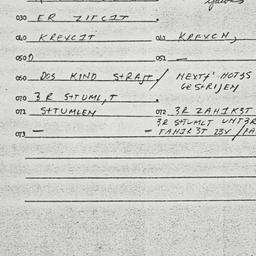 030 ER ZIFCIT .
040 KREVCIT 041 KREVCN,
050 051 —
060 DOS KIND STRAJT / NEXTF' NOTSS
GESTRIJEN
070 3R STUML,T .
071 STUMLEN 072 3R ZAHIKST
3R STUMLT UNT3R
073 — — FAHIR 3T 23V /